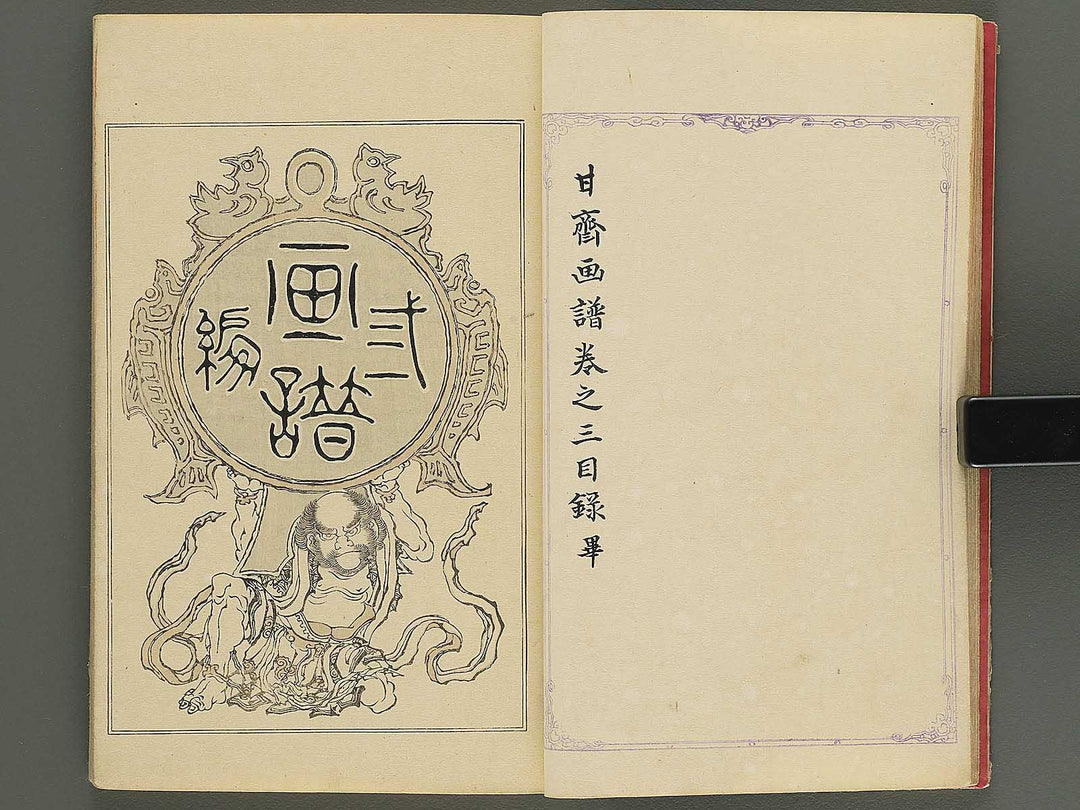 甘齋画譜卷之三目録畢
画譜
弍編